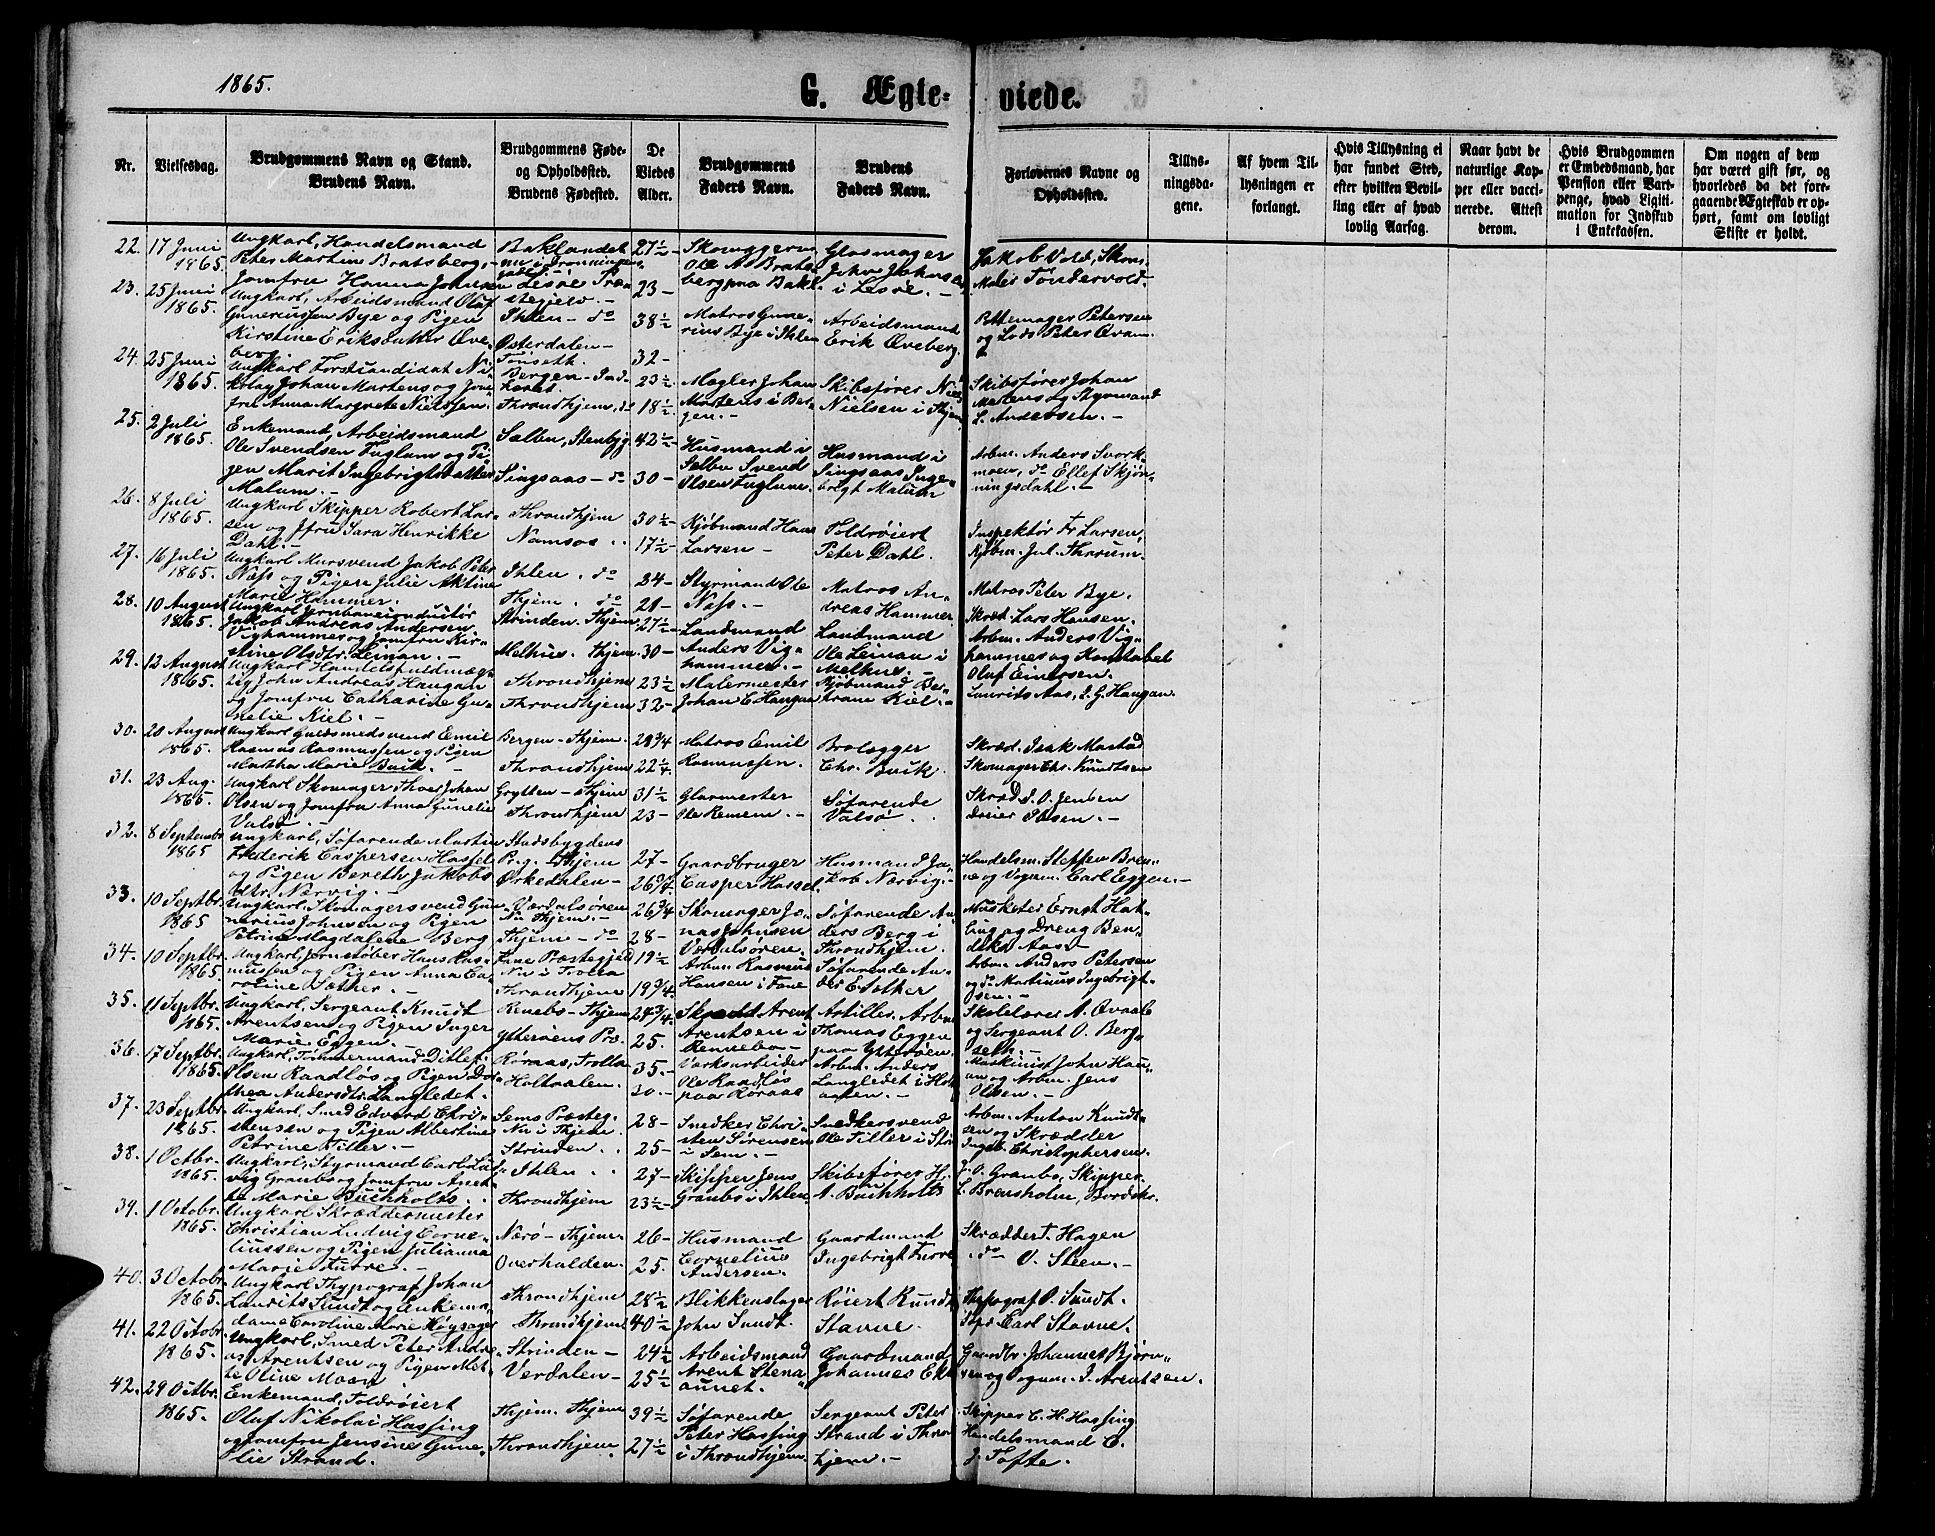 1865.
G. Ægte-
viede.
Nr.
Vielsesdag.
Brudgommens Navn og Stand.
Brudens Navn.
Brudgommens Føde-
og Opholdssted.
Brudens Fødested.
De
Viedes
Alder.
Brudgommens
Faders Navn.
Brudens
Faders Navn.
Forlovernes Navne og
Opholdssted.
Tillys-
ningsda-
gene.
Af hvem Til-
lysningen er
forlangt.
Hvis Tillysning ei
har fundet Sted,
efter hvilken Bevil-
ling eller af hvad
lovlig Aarsag.
Naar havt de
naturlige Kop-
per eller vacci-
nerede. Attest
derom.
Hvis Brudgommen
er Embedsmand, har
Pension eller Vart-
penge, hvad Ligiti-
mation for Indskud
i Enkekassen.
Om nogen af dem
har været gift før, og
hvorledes da det fore-
gaaende Ægteskab er op-
hørt, samt om lovligt
Skifte er holdt.
22. 17 Juni
1865.
Ungkarl, Handelsmand
Peter Martin Bratsberg,
Jomfru Hanna Johnsen
Baklandet
27½
23
Ole A. Brats
berg paa Bakl.
Glasmager
John Johnsen
i Lesve.
Jakob Vold,
Tøndervold.
23. 25 Juni
1865.
Ungkarl, Arbeidsmand Oluf
Gunneriussen Bye og Pigen
Kirstine Eriksdatter Øve-
berg
Ihlen - do
Østerdalen
Tønseth.
38½
32
Matros Gune-
rius Bye i Ihlen
Arbeidsmand
Erik Øveberg.
Pottemager Petersen
og Lods Peter Qvam
24. 25 Juni
1865.
Ungkarl Forstkandidat Ni-
kolay Johan Martens og Jom-
fru Anna Margrete Nielssen.
Bergen - Ind-
Throndhjem, do
23½
18½
Mægler Johan
Martens i Ber-
gen.
Skibsfører N
Nielsen i Thjem
Skibsfører Johan
Martens og Styrmand
L. Anderssen.
25. 2 Juli
1865.
Enkemand, Arbeidsmand
Ole Svendsen Fuglum og Pi-
gen Marit Ingebrigtsdatter
Malum.
Sælbu, Stenbjg.
Singsaas - do
42½
30
Husmand i
Sælbu Svend
Olsen Fuglum.
Husmand i
Singsaas Inge-
brigt Malum
Arbm. Anders Svork-
moen, do Ellef Skjøn-
ningsdahl.
26. 8 Juli
1865.
Ungkarl Skipper Robert Lar-
sen og Jfru Sara Henrikke
Dahl.
Throndhjem
Namsos
30½
17½
Kjøbmand Hans
Larsen
Toldrøiert
Peter Dahl.
Inspektør Fr Larsen,
Kjøbm. Jul. Thorum.
27. 16 Juli
1865.
Ungkarl Mursvend Jakob Peter
Næss og Pigen Julie Aktine
Marie Hammer.
Ihlen. do
Thjem. do
24
21
Styrmand Ole
Næss.
Matros An-
dreas Hammer
Matros Peter Bye.
Skræd. Lars Hansen.
28. 10 August
1865.
Ungkarl Jernbaneconduitør
Jakob Andreas Andersen
Vighammer og Jomfru Kir-
stine Olsdtr. Leinan.
Strinden. Thjem
Melhus. Thjem
27½
30
Landmand
Anders Vig-
hammer.
Landmand
Ole Leinan i
Melhus
Arbm. Anders Vig-
hammer og Konstabel
Oluf Einersen.
29. 12 August
1865.
Ungkarl Handelsfuldmæg-
tig John Andreas Haugan
og Jomfru Catharine Gu-
nelie Kiel.
Throndhjem
Throndhjem
23½
32
Malermester
Johan C Haugan
Kjøbmand Be-
trane Kiel.
Laurits Aas, I. G. Haugan.
30. 20 August
1865.
Ungkarl Guldsmedsvend Emil
Rasmus Rasmussen og Pigen
Martha Marie Buik.
Bergen - Thjem.
Throndhjem
28¾
22¼
Matros Emil
Rasmussen.
Brolægger
Chr. Buik.
Skræd. Isak Mastad
Skomager Chr. Knudtsen
31. 23 Aug.
1865.
Ungkarl Skomager Thoer Johan
Olsen og Jomfru Anna Gunelie
Valsø.
Grytten - Thjem
Throndhjem
31½
23
Glarmester
Ole Remem.
Søfarende
Valsø.
Skræd. I. O. Jensen
Dreier Olsen.
32. 8 Septembr
1865
Ungkarl, Søfarende Martin
Frederik Caspersen Hassel
og Pigen Bereth Jakobs
dtr. Nervig.
Stadsbygdens
Prg. Thjem
Ørkedalen
27
26¾
Gaardbruger
Casper Hassel.
Husmand Ja-
kob Nærvig.
Handelsm. Steffen Bren-
ne og Vognm. Carl Eggen.
33. 10 Septbr.
1865
Ungkarl, Skomagersvend Gun-
nerius Johnsen og Pigen
Petrine Magdalene Berg
Værdalsøren
Nu Thjem.
Thjem - do
26¾
28
Skomager Jo-
nas Johnsen
Værdalsøren.
Søfarende An-
ders Berg i
Throndhjem.
Musketer Ernst Hat-
ling og Dreng Ben-
dikt Aas
34. 10 Septbr.
1865
Ungkarl, Jernstøber Hans Ras-
mussen og Pigen Anna Ca-
roline Sæther.
Fane Præstegjed
Nu i Trolla
Throndhjem
19½
19¾
Arbm. Rasmus
Hansen i Fane
Søfarende An-
ders E Sæther
Arbm. Anders Petersen
og do. Martinus Ingebrigt-
sen.
35. 11 Septbr.
1865.
Ungkarl, Sergeant Knudt
Arentsen og Pigen Inger
Marie Eggen.
Renebo - Thjem
Ytterøens Præ.
24¾
25.
Arent
Arentsen i
Rennebo
Artiller. Arbm
Thomas Eggen
paa Ytterøen.
Skolelærer A. Qvaale
og Sergeant O. Berg-
seth.
36. 17 Septbr.
1865.
Ungkarl, Tømmermand Ditlef
Olsen Raadløs og Pigen Do-
thea Andersdtr. Langledet.
Røraas, Trolla
Holtaalen.
35.
30.
Værksarbeider
Ole Raadløs
paa Røraas
Arbm. Anders
Langledet i Holt-
aalen.
Maskinist John Hau-
an og Arbm. Jens
Olsen.
37. 23 Septbr.
1865.
Ungkarl, Smed Edvard Chri-
stensen og Pigen Albertine
Petrine Tiller
Sems Præsteg.
Nu i Thjem.
Strinden
28
25
Snedker Chri-
sten Sørensen
i Sem.
Snedkersvend
Ole Tiller i Stri
Arbm. Anton Knudt-
sen og Skrædder
Ingeb. Christophersen.
38. 1 Octbr.
1865.
Ungkarl, Styrmand Carl Lud-
vig Granbo og Jomfru Anet-
te Marie Buchholts.
Ihlen
Throndhjem
27
23½
Skipper Jens
Granbo i Ihlen
Skibsfører H.
A. Buchholts
J. O. Granbo, Skipper.
L. Brensholm, Bordskr.
39. 1 Octobr.
1865.
Ungkarl Skræddermester
Christian Ludvig Corne-
liussen og Pigen Julianna
Marie Furre.
Nærø - Thjem.
Overhalden.
26
25.
Husmand
Cornelius
Andersen.
Gaardmand
Ingebrigt Furre
Skrædder T. Hagen
do O. Steen.
40. 3 Octobr.
1865.
Ungkarl Thypograf Johan
Laurits Sundt og Enkema-
dame Caroline Marie Høysager
Throndhjem
Throndhjem
28½
40½
Blikkenslager
John Sundt.
Røiert Kundt
Stavne.
Thypograf O. Sundt.
Carl Stavne.
41. 22 Octobr.
1865.
Ungkarl, Smed Peter Andre-
as Arentsen og Pigen Met-
te Oline Moan
Strinden
Verdalen
24½
25½
Arbeidsmand
Arent Stena-
aunet.
Gaardmand
Johannes Ekl
Gaardbr. Johannes Bjørn-
sen og Vognm. I. Arentzen.
42. 29 Octbr.
1865.
Enkemand, Toldrøiert
Oluf Nikolai Hassing
og Jomfru Jensine Gune-
lie Strand.
Thjem. Thjem
Throndhjem.
39½
27½
Søfarende
Peter Hassing
i Throndhjem.
Sergeant Peter
Strand i Thron-
hjem.
Skipper C. H. Hassing
Handelsmand C.
J. Tofte.